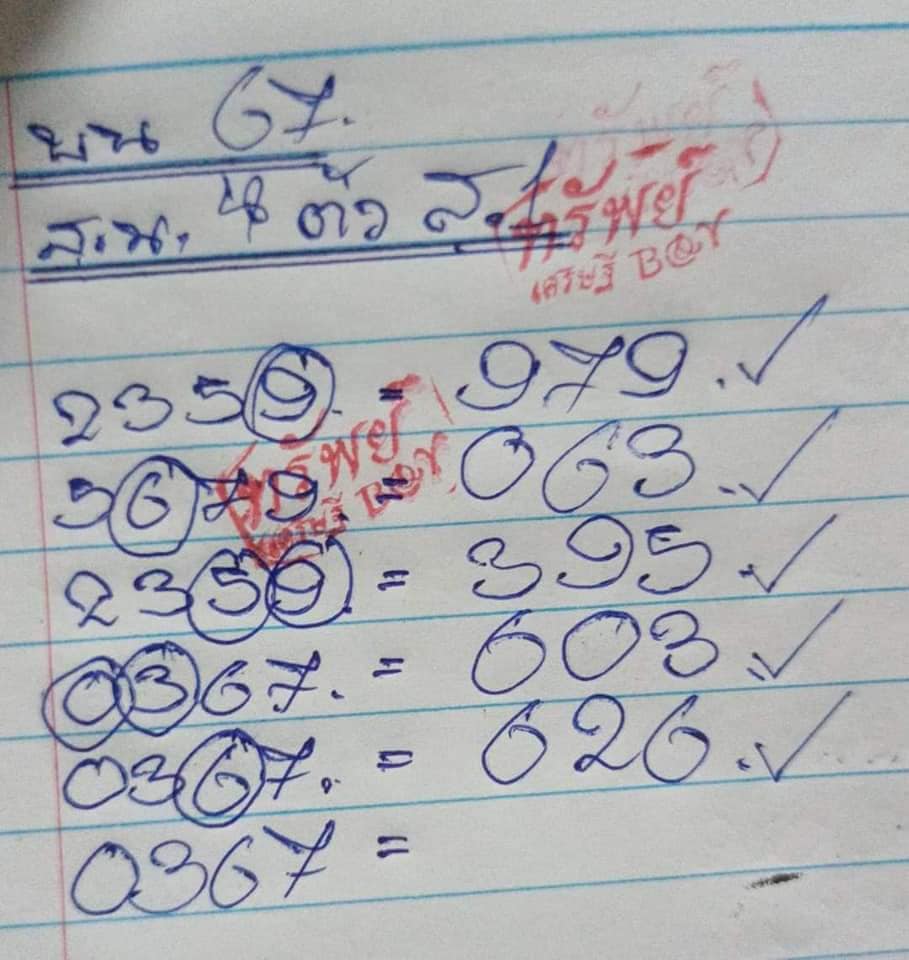 บน 67.
ส.น. 4 ตัว ส.1
ทรัพย์
เศรษฐี B@Y
2359. = 979.✓
3679. = 063.✓
ทรัพย์
เศรษฐี B@Y
2359. = 395.✓
0367. = 603.✓
0367. = 626.✓
0367 =